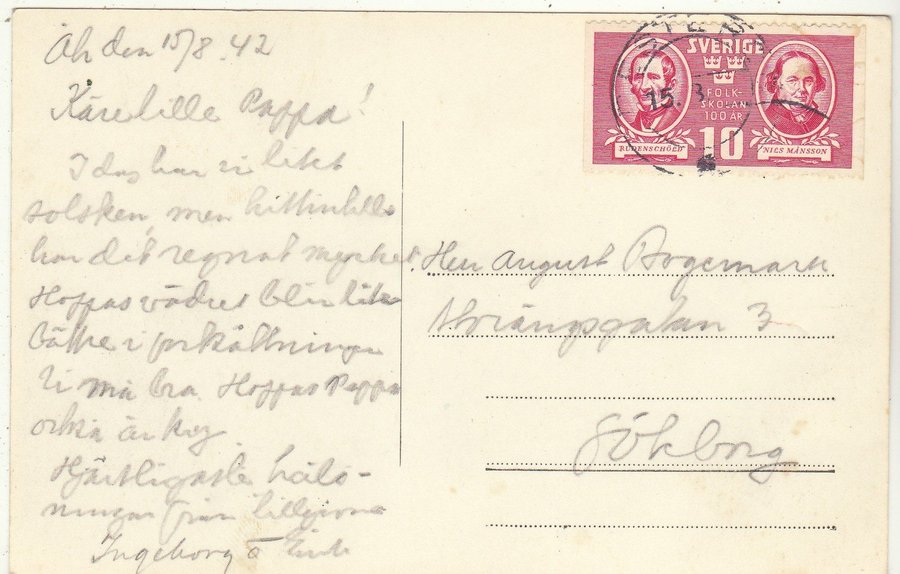 Åh den 15/8.42
Käre lille Pappa!
I dag har vi lite
solsken, men hittintills
har det regnat mycket.
Hoppas vädret blir lite
bättre i fortsättningen
Vi må bra. Hoppas Pappa
också är kry
Hjärtligaste häls-
ningar från
Ingeborg o
SVERIGE
FOLK-
SKOLAN
100 ÅR
10
RUDENSCHÖLD
NILS MÅNSSON
15. 8
Herr August Bogemark
3
Göteborg